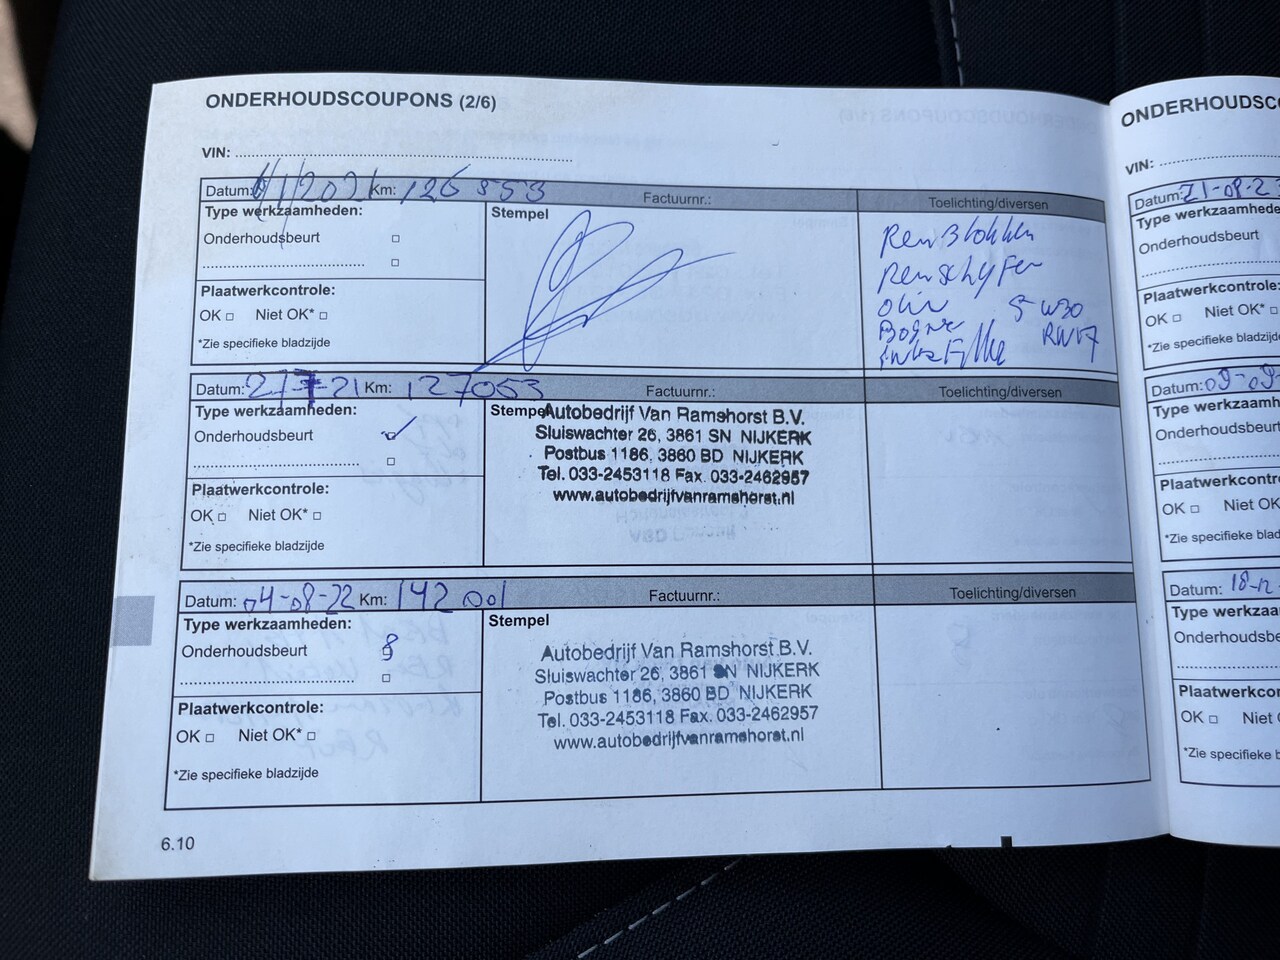 ONDERHOUDSCOUPONS (2/6)
VIN:
Datum: Km: 126 853 Factuurnr.: Toelichting/diversen
Type werkzaamheden: Stempel
Onderhoudsbeurt
Remblokken
Remschyfen
Olie 5 W30
RN17
Plaatwerkcontrole:
OK Niet OK*
*Zie specifieke bladzijde
Datum: 2/7-21 Km: 127053 Factuurnr.: Toelichting/diversen
Type werkzaamheden: Stempel
Onderhoudsbeurt
Plaatwerkcontrole:
OK Niet OK*
*Zie specifieke bladzijde
Autobedrijf Van Ramshorst B.V.
Sluiswachter 26, 3861 SN NIJKERK
Postbus 1186, 3860 BD NIJKERK
Tel. 033-2453118 Fax. 033-2462957
www.autobedrijfvanramshorst.nl
Datum: 04-08-22 Km: 142001 Factuurnr.: Toelichting/diversen
Type werkzaamheden: Stempel
Onderhoudsbeurt
Plaatwerkcontrole:
OK Niet OK*
*Zie specifieke bladzijde
Autobedrijf Van Ramshorst B.V.
Sluiswachter 26, 3861 SN NIJKERK
Postbus 1186, 3860 BD NIJKERK
Tel. 033-2453118 Fax. 033-2462957
www.autobedrijfvanramshorst.nl
6.10
ONDERHOUDSC
VIN:
Datum: 21-08-2
Type werkzaamhede
Onderhoudsbeurt
Plaatwerkcontrole:
OK Niet OK*
*Zie specifieke bladz
Datum: 09-09-
Type werkzaamh
Onderhoudsbeurt
Plaatwerkcontr
OK Niet OK
*Zie specifieke blad
Datum: 18-12
Type werkzaa
Onderhoudsbe
Plaatwerkcon
OK Niet
*Zie specifieke b